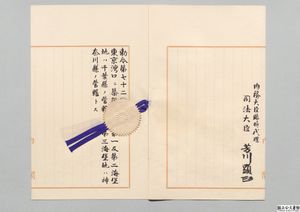 内務大臣臨時代理
司法大臣 芳川顯正
勅令第七十二
東京灣口ニ築 一及第二海堡
地ハ千葉縣ノ管 第三海堡地ハ神
奈川縣ノ管轄トス
国立公文書館